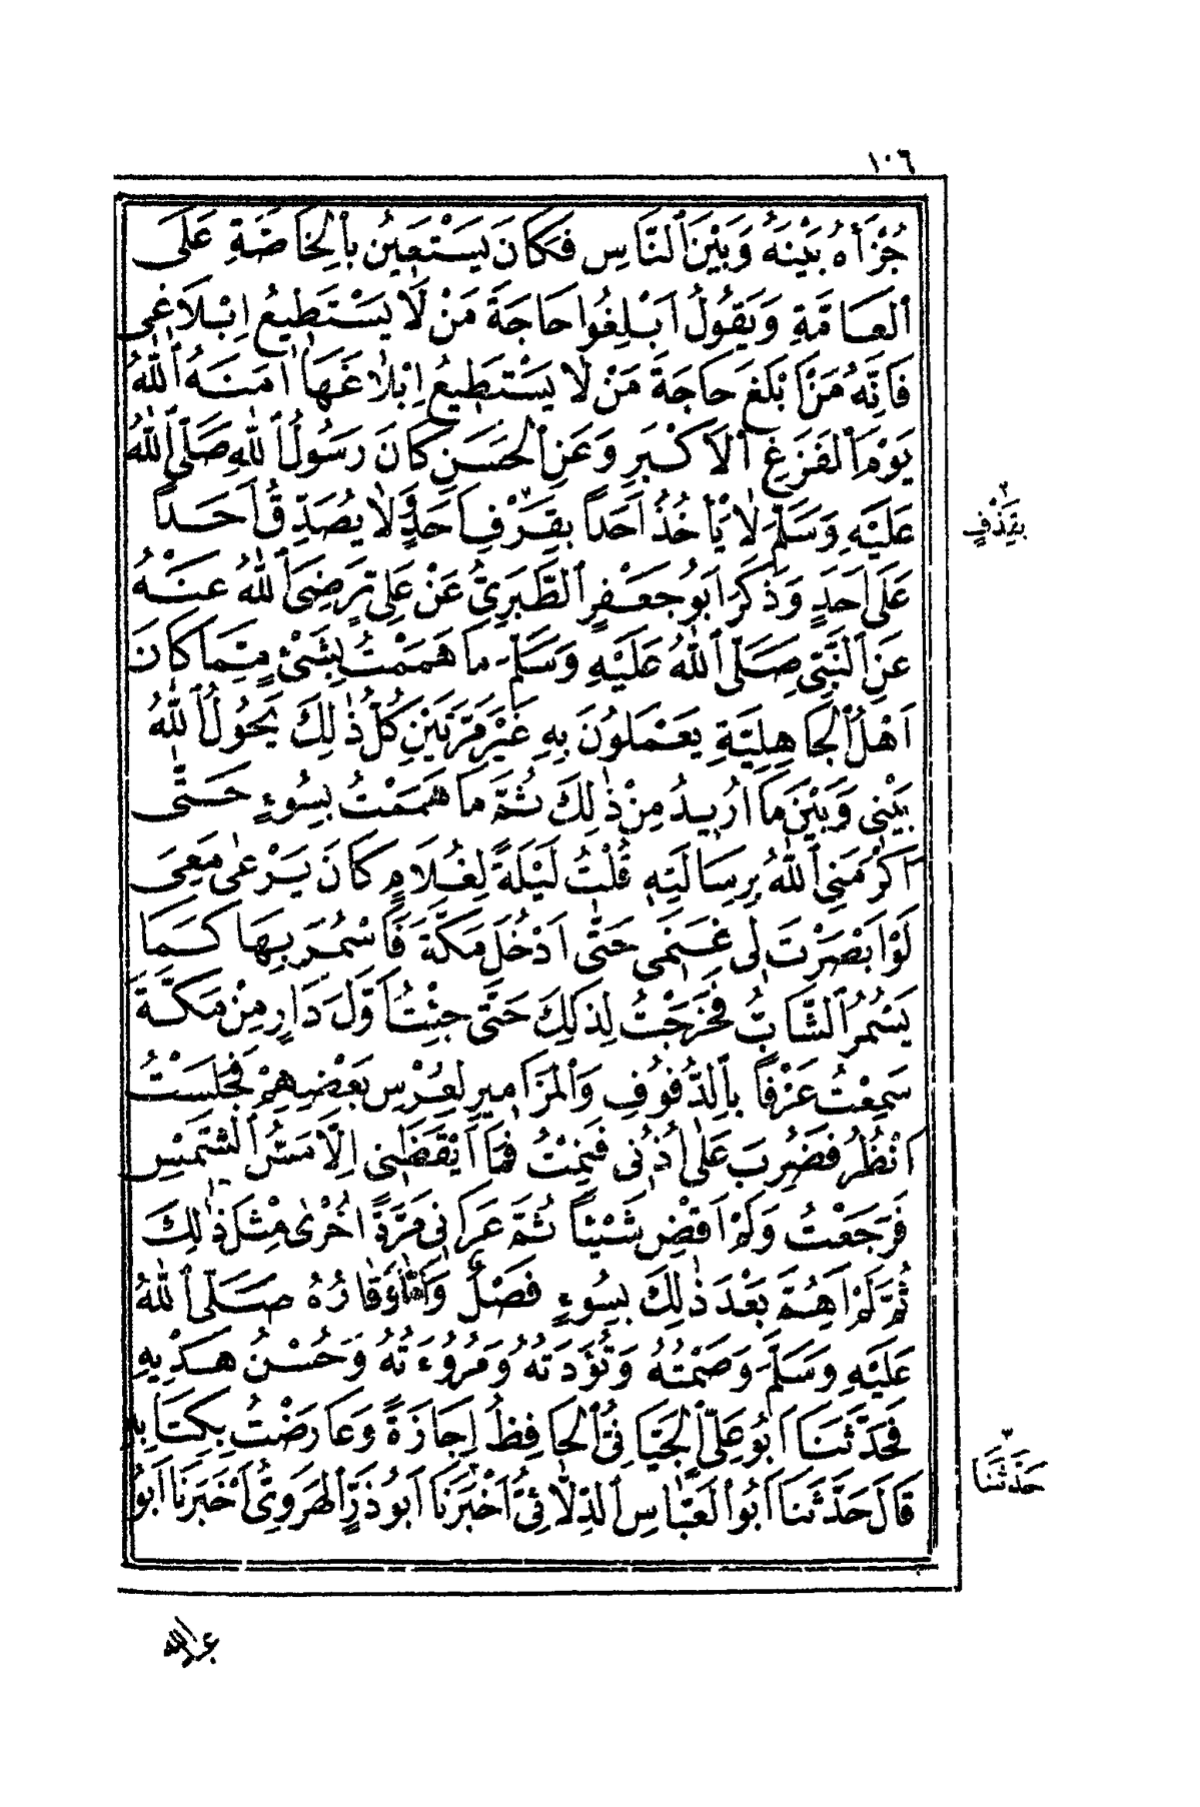 ١٠٦
جُزْأَهُ بَيْنَهُ وَبَيْنَ ٱلنَّاسِ فَكَانَ يَسْتَعِينُ بِٱلْخَاصَّةِ عَلَى
ٱلْعَامَّةِ وَيَقُولُ اَبْلِغُوا حَاجَةَ مَنْ لَا يَسْتَطِيعُ اِبْلَاغِى
فَاِنَّهُ مَنْ اَبْلَغَ حَاجَةَ مَنْ لَا يَسْتَطِيعُ اِبْلَاغَهَا اٰمَنَهُ ٱللهُ
يَوْمَ ٱلْفَزَعِ ٱلْاَكْبَرِ وَعَنِ ٱلْحَسَنِ كَانَ رَسُولُ ٱللهِ صَلَّى ٱللهُ
عَلَيْهِ وَسَلَّمَ لَا يَأْخُذُ اَحَداً بِقَرْفِ اَحَدٍ وَلَا يُصَدِّقُ اَحَداً
بِقَذْفِ
عَلَى اَحَدٍ وَذَكَرَ اَبُو جَعْفَرٍ ٱلطَّبَرِىُّ عَنْ عَلِىٍّ رَضِىَ ٱللهُ عَنْهُ
عَنِ ٱلنَّبِىِّ صَلَّى ٱللهُ عَلَيْهِ وَسَلَّمَ مَا هَمَمْتُ بِشَىْءٍ مِمَّا كَانَ
اَهْلُ ٱلْجَاهِلِيَّةِ يَعْمَلُونَ بِهِ غَيْرَ مَرَّتَيْنِ كُلُّ ذٰلِكَ يَحُولُ ٱللهُ
بَيْنِى وَبَيْنَ مَا اُرِيدُ مِنْ ذٰلِكَ ثُمَّ مَا هَمَمْتُ بِسُوءٍ حَتَّى
اَكْرَمَنِى ٱللهُ بِرِسَالَتِهِ قُلْتُ لَيْلَةً لِغُلَامٍ كَانَ يَرْعٰى مَعِىَ
لَوْ اَبْصَرْتَ لِى غَنَمِى حَتَّى اَدْخُلَ مَكَّةَ فَاَسْمُرَ بِهَا كَمَا
يَسْمُرُ ٱلشَّابُّ فَخَرَجْتُ لِذٰلِكَ حَتَّى جِئْتُ اَوَّلَ دَارٍ مِنْ مَكَّةَ
سَمِعْتُ عَزْفاً بِٱلدُّفُوفِ وَٱلْمَزَامِيرِ لِعُرْسِ بَعْضِهِمْ فَجَلَسْتُ
اَنْظُرُ فَضُرِبَ عَلٰى اُذُنِى فَنِمْتُ فَمَا اَيْقَظَنِى اِلَّا مَسُّ ٱلشَّمْسِ
فَرَجَعْتُ وَلَمْ اَقْضِ شَيْئاً ثُمَّ عَرَانِى مَرَّةً اُخْرٰى مِثْلُ ذٰلِكَ
ثُمَّ لَمْ اَهُمَّ بَعْدَ ذٰلِكَ بِسُوءٍ فَصْلٌ وَاَمَّا وَقَارُهُ صَلَّى ٱللهُ
عَلَيْهِ وَسَلَّمَ وَصَمْتُهُ وَتُؤَدَتُهُ وَمُرُوءَتُهُ وَحُسْنُ هَدْيِهِ
فَحَدَّثَنَا اَبُو عَلِىٍّ ٱلْجَيَّانِىُّ ٱلْحَافِظُ اِجَازَةً وَعَارَضْتُ بِكِتَابِهِ
حَدَّثَنَا
قَالَ حَدَّثَنَا اَبُو ٱلْعَبَّاسِ ٱلدِّلَائِىُّ اَخْبَرَنَا اَبُو ذَرٍّ ٱلْهَرَوِىُّ اَخْبَرَنَا اَبُو
عبدالله